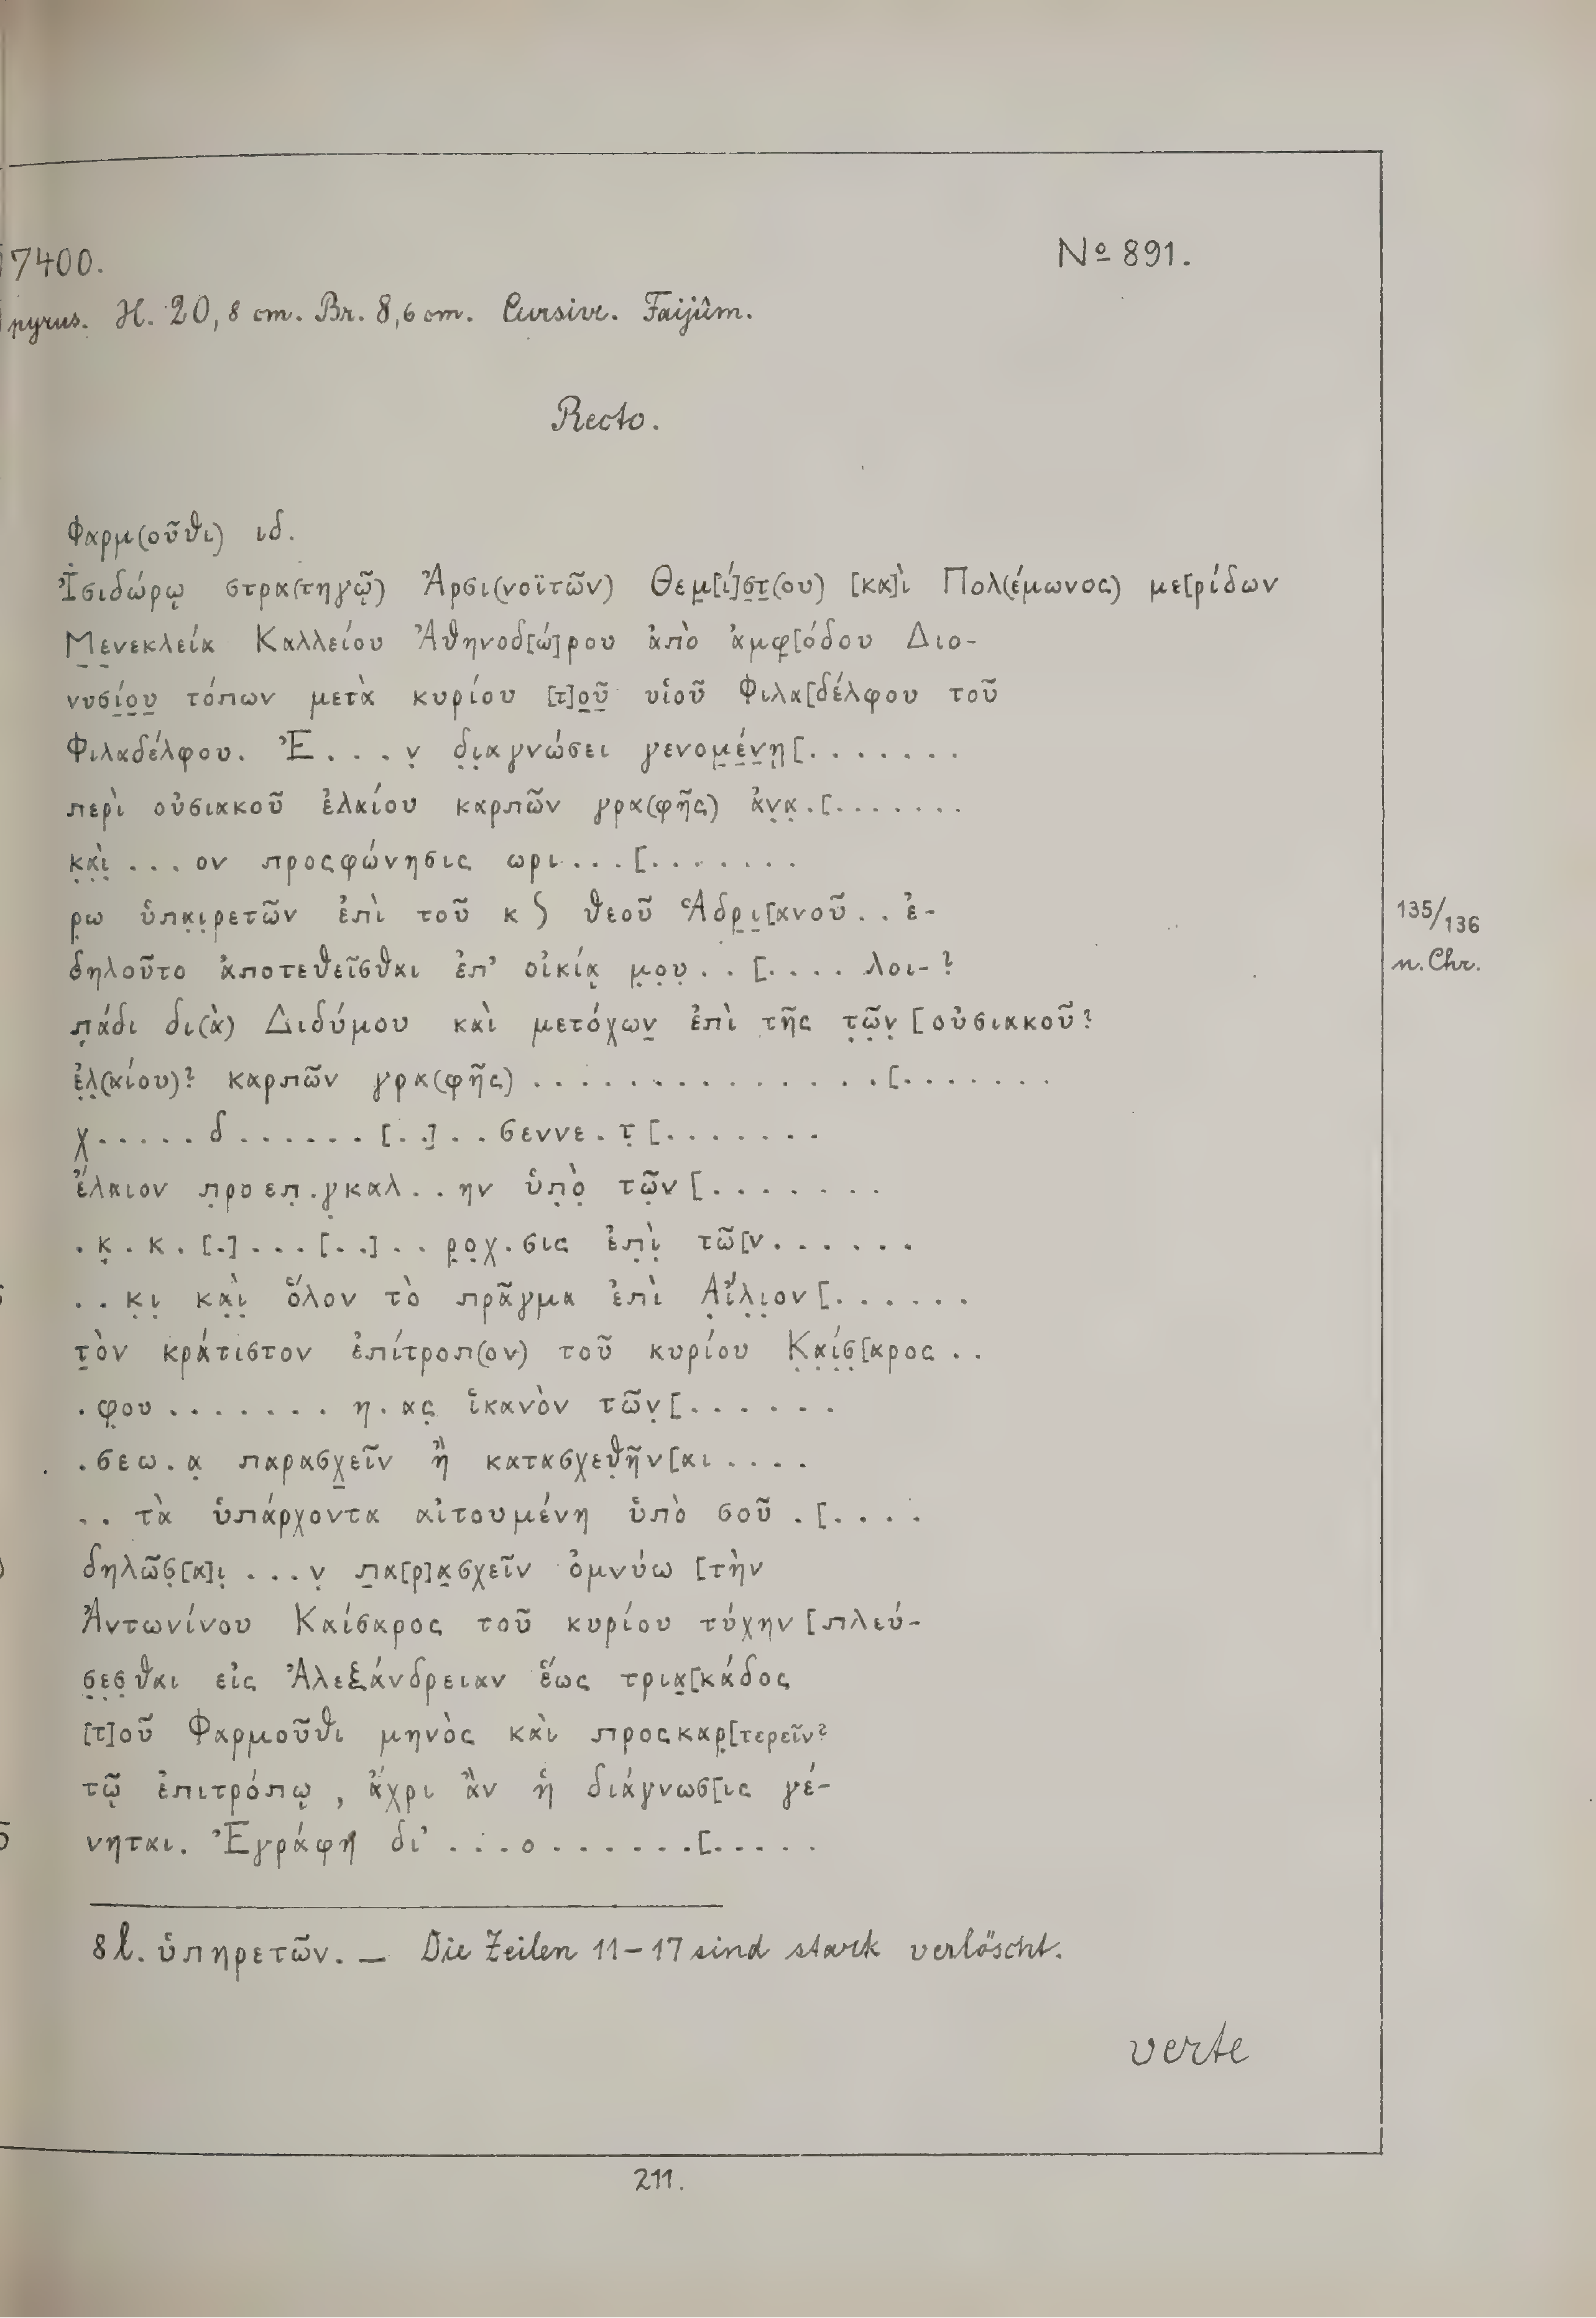 7400.
No 891.
pyrus. H. 20,8 cm. Br. 8,6 cm. Cursive. Faijûm.
Recto.
Φαρμ(οῦθι) ιδ.
Ἰσιδώρῳ στρα(τηγῷ) Ἀρσι(νοϊτῶν) Θεμ̣[ί]σ̣τ̣(ου) [κα]ὶ Πολ(έμωνος) με[ρίδων
Μ̣ε̣νεκλεία Καλλείου Ἀθηνοδ[ώ]ρου ἀπὸ ἀμφ[όδου Διο-
νυσί̣ο̣υ̣ τόπων μετὰ κυρίου [τ]ο̣ῦ̣ υἱοῦ Φιλα[δέλφου τοῦ
Φιλαδέλφου. Ἐ . . . ν̣ δ̣ι̣αγνώσει γενομ̣έ̣ν̣η̣[. . . . . . .
περὶ οὐσιακοῦ ἐλαίου καρπῶν γρα(φῆς) ἀν̣α̣.[. . . . . . .
κ̣α̣ὶ̣ . . . ον προςφώνησις ωρι . . . [. . . . . . .
ρ̣ω ὑπα̣ι̣ρετῶν ἐπὶ τοῦ κ ϛ θεοῦ Ἁδρ̣ι̣[ανοῦ . . ἐ-
135/136
δηλοῦτο ἀποτεθεῖσθαι ἐπ’ οἰκίᾳ μ̣ο̣υ̣ . . [. . . . λοι-?
n. Chr.
π̣άδι δι(ὰ) Διδύμου καὶ μετόχων̣ ἐπὶ τῆς τ̣ῶ̣ν̣ [οὐσιακοῦ?
ἐ̣λ̣(αίου)? καρπῶν γρα(φῆς) . . . . . . . . . . . . . . . [. . . . . . .
χ . . . . . δ . . . . . . [. .] . . σεννε . τ̣ [. . . . . . .
ἔλαιον π̣ροεπ̣.γ̣καλ . . ην ὑπ̣ὸ̣ τῶ̣ν [. . . . . . .
. κ̣ . κ . [.] . . . [. .] . . ρ̣ο̣χ . σις ἐπ̣ὶ̣ τῶ[ν . . . . . .
. . κ̣ι̣ κα̣ὶ̣ ὅλον τὸ πρᾶγμα ἐπὶ Α̣ἴλ̣ι̣ον [. . . . . .
τ̣ὸν κράτιστον ἐπίτροπ(ον) τοῦ κυρίου Κ̣α̣ί̣σ̣[αρος . .
. φ̣ου . . . . . . . η . ας̣ ἱκανὸν τῶν̣ [. . . . . .
. σεω . α̣ παρασχ̣εῖν ἢ κατασχεθ̣ῆν[αι . . . .
. . τὰ ὑπάρχοντα αἰτουμένη ὑπὸ σοῦ . [. . . .
δηλῶσ̣[α]ι̣ . . . ν̣ π̣α[ρ]α̣σχεῖν ὀμνύω [τὴν
Ἀντωνίνου Καίσαρος τοῦ κυρίου τύχην [πλεύ-
σ̣ε̣σ̣θαι εἰς Ἀλεξάνδρειαν ἕως τρια̣[κάδος
[τ]οῦ Φαρμοῦθι μηνὸς καὶ προςκαρ̣[τερεῖν?
τῷ ἐπιτρόπῳ, ἄχρι ἂν ἡ διάγνωσ[ις γέ-
νηται. Ἐγράφη δι’ . . . ο . . . . . . . [. . . . .
8 l. ὑπηρετῶν. — Die Zeilen 11–17 sind stark verlöscht.
verte
211.